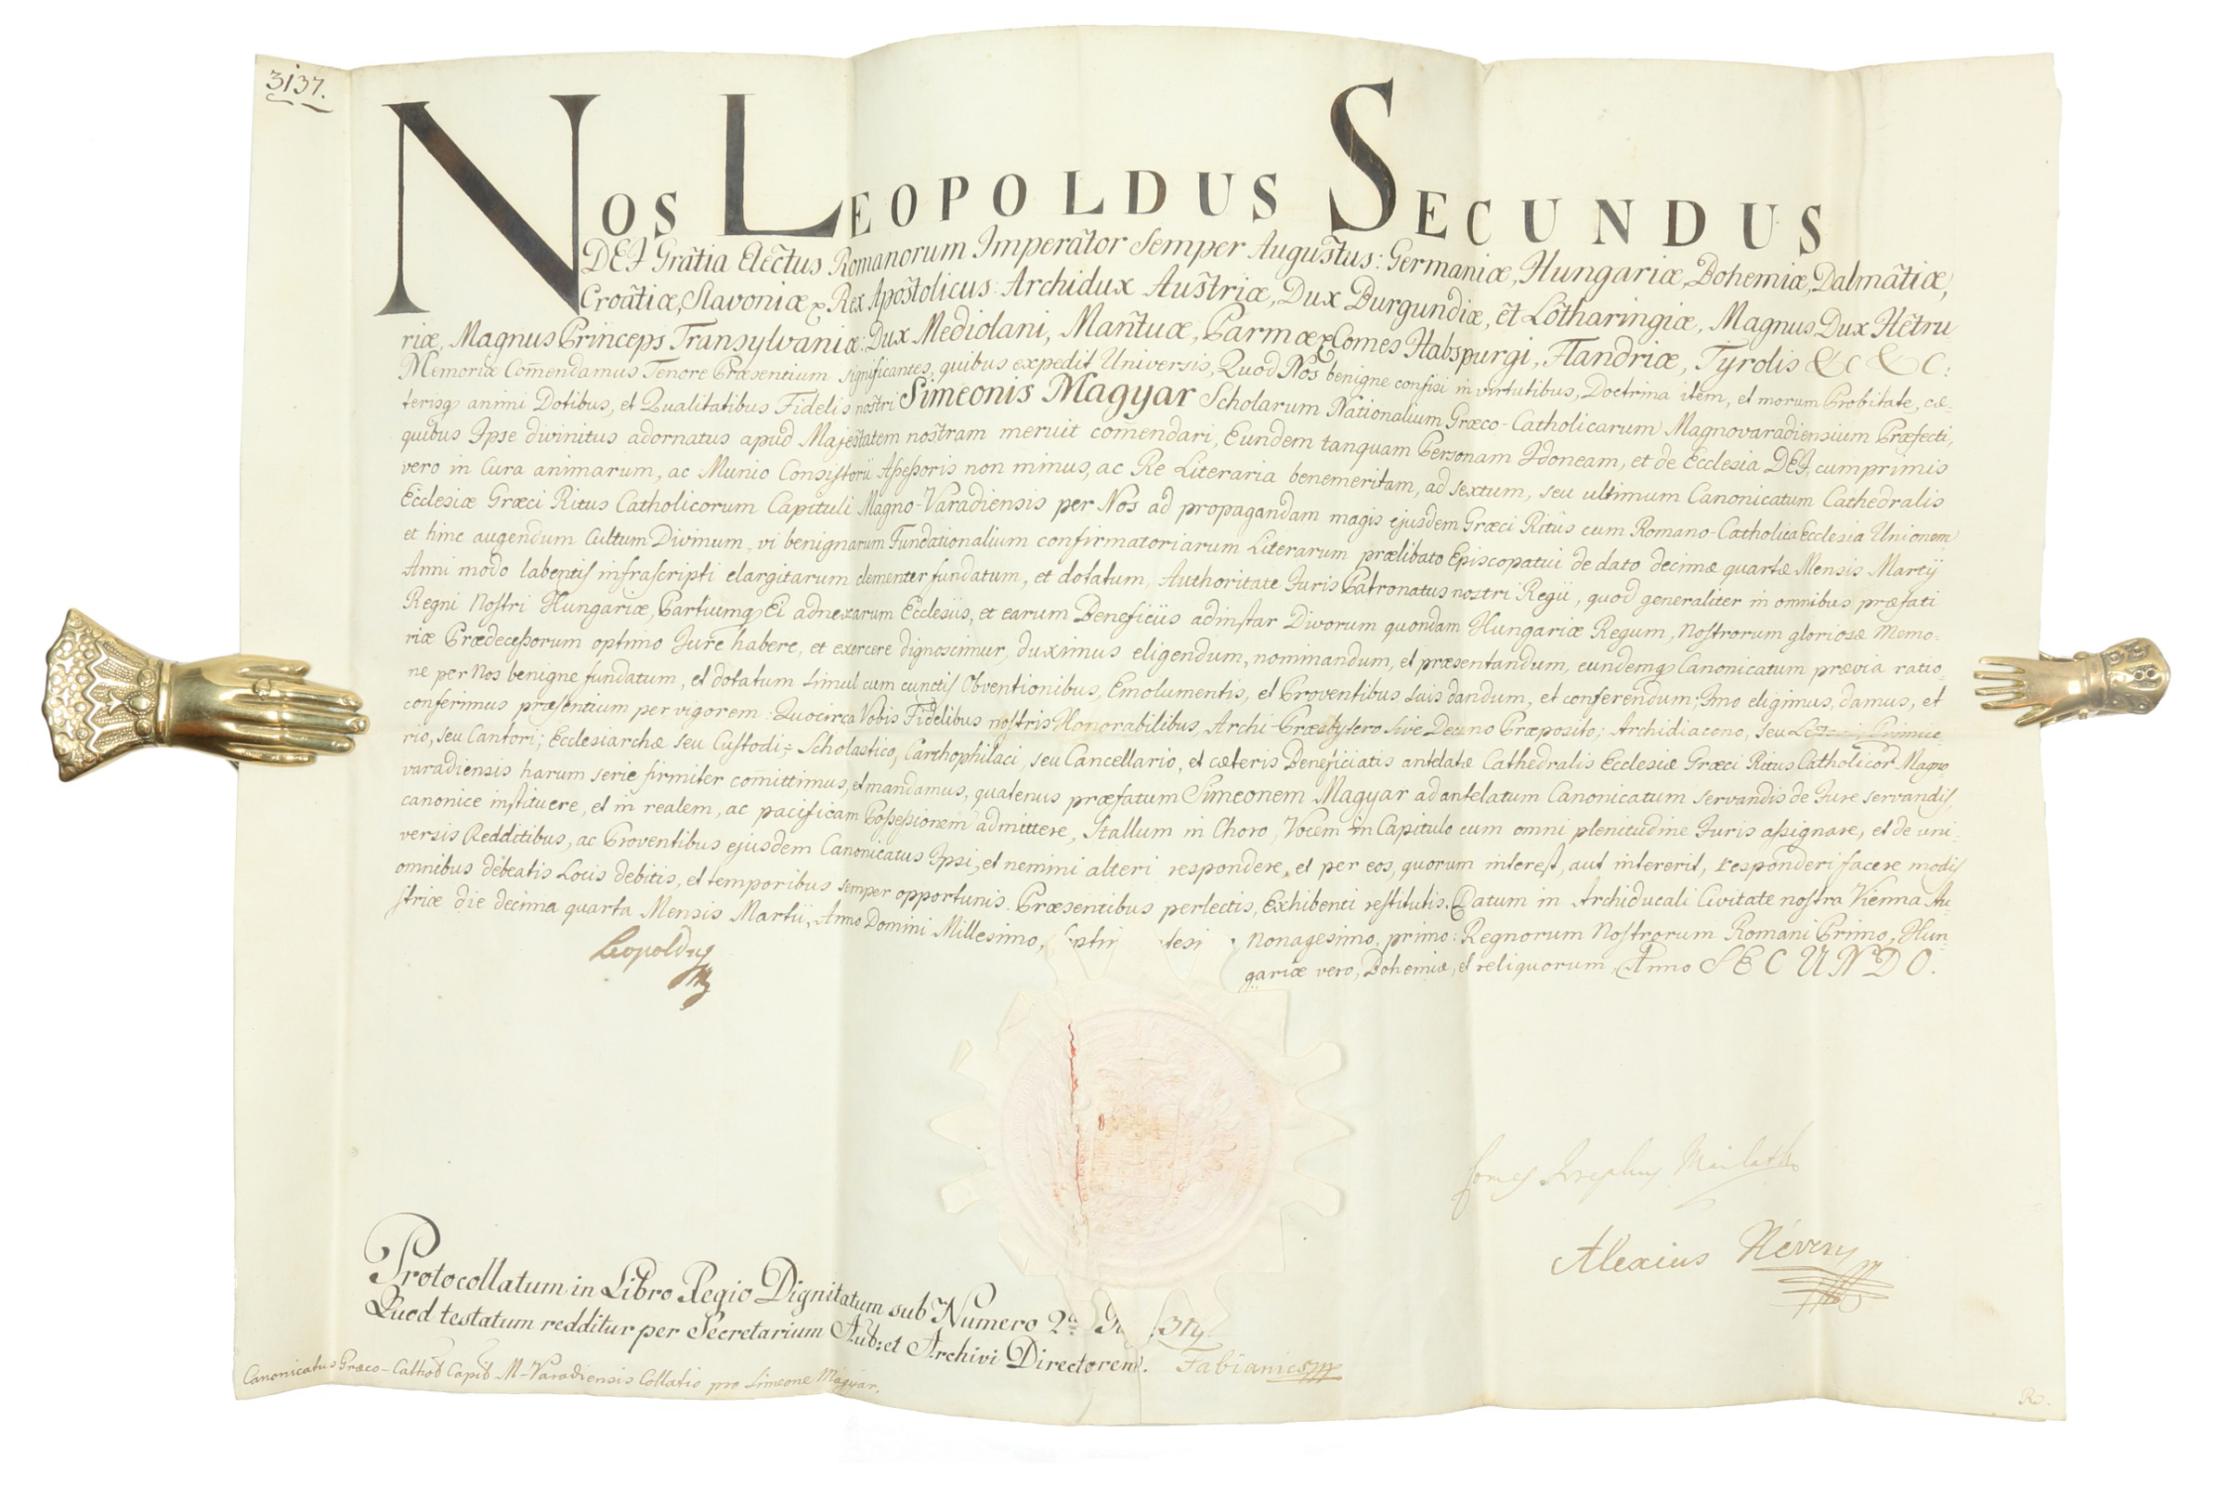 3137.
NOS LEOPOLDUS SECUNDUS
DEI Gratia Electus Romanorum Imperator Semper Augustus: Germaniæ, Hungariæ, Bohemiæ, Dalmatiæ,
Croatiæ, Slavoniæ & Rex Apostolicus: Archidux Austriæ, Dux Burgundiæ, et Lotharingiæ, Magnus Dux Hetru-
riæ, Magnus Princeps Transylvaniæ: Dux Mediolani, Mantuæ, Parmæ & Comes Habspurgi, Flandriæ, Tyrolis &c &c:
Memoriæ Com̃endamus Tenore Præsentium significantes, quibus expedit Universis, Quod Nos benigne confisi in virtutibus, Doctrina item, et morum Probitate, cæ-
terisq animi Dotibus, et Qualitatibus Fidelis nostri Simeonis Magyar Scholarum Nationalium Græco-Catholicarum Magnovaradiensium Præfecti,
quibus Ipse divinitus adornatus apud Majestatem nostram meruit com̃endari, Eundem tanquam Personam Idoneam, et de Ecclesia DEI, cumprimis
vero in Cura animarum, ac Munio Consistorii Assessoris non minus, ac Re Literaria benemeritam, ad sextum, seu ultimum Canonicatum Cathedralis
Ecclesiæ Græci Ritus Catholicorum Capituli Magno-Varadiensis per Nos ad propagandam magis ejusdem Græci Ritus cum Romano-Catholica Ecclesia Unionem
et hinc augendum Cultum Divinum, vi benignarum Fundationalium confirmatoriarum Literarum prælibato Episcopatui de dato decimæ quartæ Mensis Martij
Anni modo labentis infrascripti elargitarum clementer fundatum, et dotatum, Authoritate Juris Patronatus nostri Regii, quod generaliter in omnibus præfati
Regni Nostri Hungariæ, Partiumq Ei adnexarum Ecclesiis, et earum Beneficiis adinstar Divorum quondam Hungariæ Regum, Nostrorum gloriosæ Memo-
riæ Prædecessorum optimo Jure habere, et exercere dignoscimur, duximus eligendum, nominandum, et præsentandum, eundemq Canonicatum prævia ratio-
ne per Nos benigne fundatum, et dotatum simul cum cunctis Obventionibus, Emolumentis, et Proventibus suis dandum, et conferendum; Imo eligimus, damus, et
conferimus præsentium per vigorem: Quocirca Vobis Fidelibus nostris Honorabilibus, Archi-Præsbytero sive Decano Præposito; Archidiacono, seu Primice-
rio, seu Cantori; Ecclesiarchæ seu Custodi; Scholastico, Carthophilaci, seu Cancellario, et cæteris Beneficiatis antelatæ Cathedralis Ecclesiæ Græci Ritus Catholicor Magno
varadiensis harum serie firmiter com̃ittimus, et mandamus, quatenus præfatum Simeonem Magyar ad antelatum Canonicatum servandis de Jure servandis,
canonice instituere, et in realem, ac pacificam Possessionem admittere, Stallum in Choro, Vocem in Capitulo cum omni plenitudine Juris assignare, et de uni-
versis Redditibus, ac Proventibus ejusdem Canonicatus Ipsi, et nemini alteri respondere, et per eos, quorum interest, aut intererit, responderi facere modis
omnibus debeatis Locis debitis, et temporibus semper opportunis. Præsentibus perlectis, Exhibenti restitutis. Datum in Archiducali Civitate nostra Vienna Au-
striæ die decima quarta Mensis Martii, Anno Domini Millesimo, Nonagesimo primo: Regnorum Nostrorum Romani Primo, Hun-
gariæ vero, Bohemiæ, et reliquorum, Anno SECUNDO.
Leopoldus
Comes Josephus Mailath
Alexius Névery
Protocollatum in Libro Regio Dignitatum sub Numero 2º
Quod testatum redditur per Secretarium Aul: et Archivi Directorem. Fabianics
Canonicatus Græco-Cathol Capit M-Varadiensis Collatio pro Simeone Magyar.